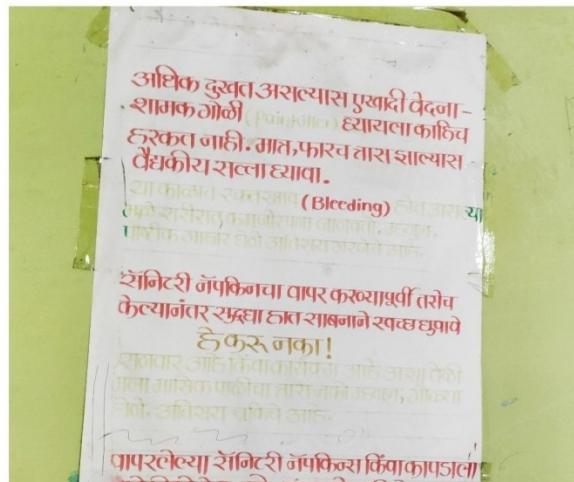 अधिक दुखत असल्यास एखादी वेदना-
शामक गोळी (Painkiller) घ्यायला काहिच
हरकत नाही. मात्र, फारच त्रास झाल्यास
वैद्यकीय सल्ला घ्यावा.
या काळात रक्तस्त्राव (Bleeding) होत असल्या
मुळे शरीरात कमजोरपणा जाणवतो. म्हणून,
पौष्टीक आहार घेणे अतिशय गरजेचे आहे.
सॅनिटरी नॅपकिनचा वापर करण्यापूर्वी तसेच
केल्यानंतर सुद्धा हात साबनाने स्वच्छ धुवावे
हे करू नका!
सनवार आहे किंवा कार्यक्रम आहे अशा वेळी
मला मासिक पाळीचा त्रास नको म्हणून, गोळ्या
घेणे. अतिशय चूकिचे आहे.
वापरलेल्या सॅनिटरी नॅपकिन्स किंवा कापडाला